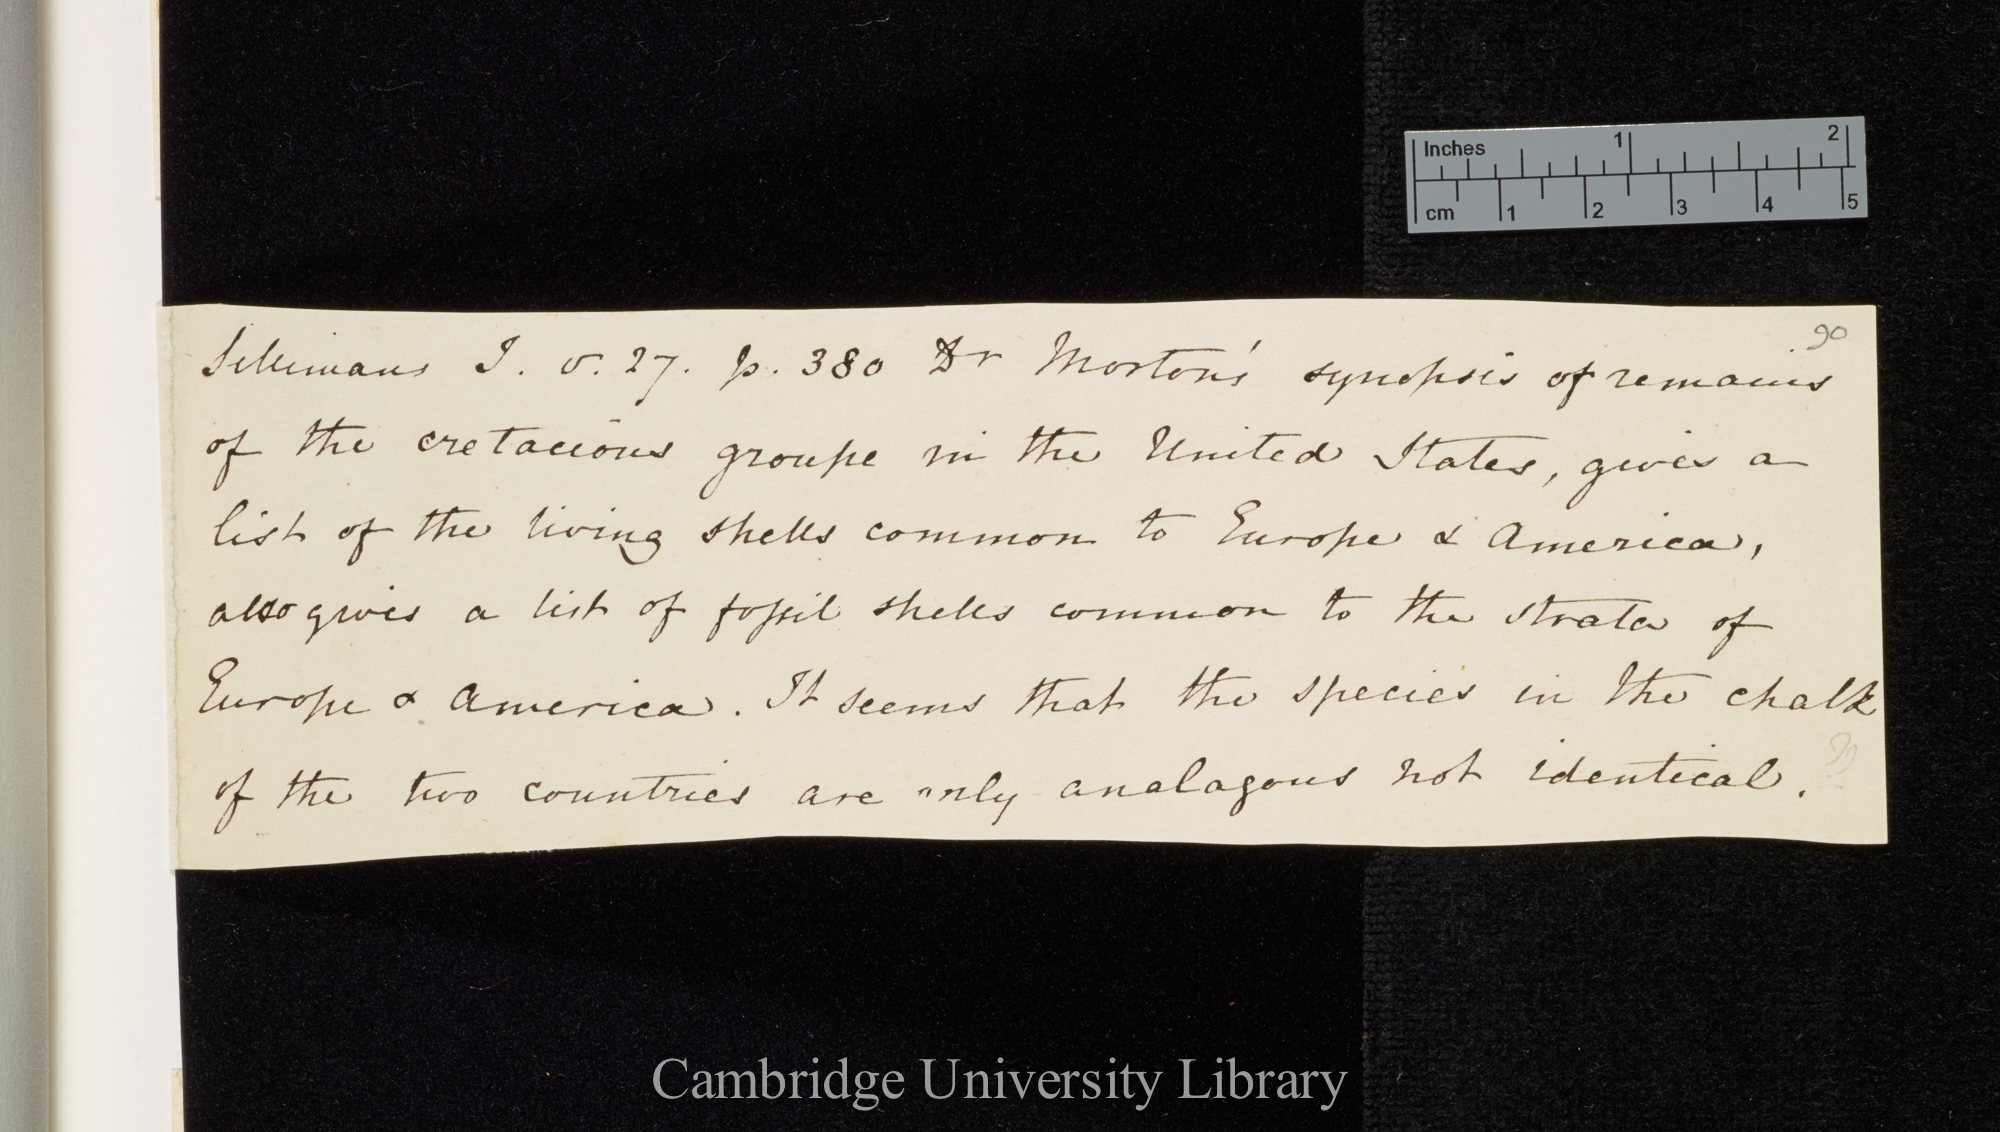 90
Sillimans J. v. 27. p. 380 Dr Morton's synopsis of remains
of the cretacious groupe in the United States, gives a
list of the living shells common to Europe & America,
also gives a list of fossil shells common to the strata of
Europe & America. It seems that the species in the chalk
of the two countries are only analagous not identical.
Inches 1 2
cm 1 2 3 4 5
Cambridge University Library